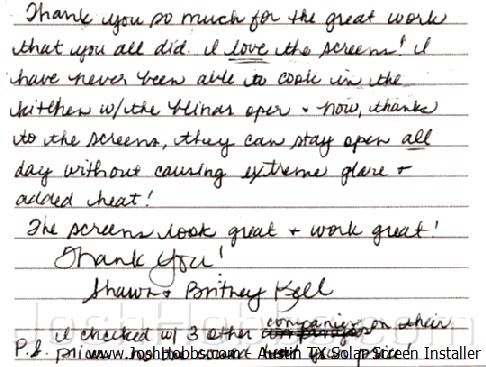 Thank you so much for the great work
that you all did. I love the screens! I
have never been able to cook in the
kitchen w/the blinds open + now, thanks
to the screens, they can stay open all
day without causing extreme glare +
added heat!
The screens look great + work great!
Thank You!
Shawn + Britney Kell
P.S. I checked w/ 3 other companies on their
www.JoshHobbs.com Austin TX Solar Screen Installer